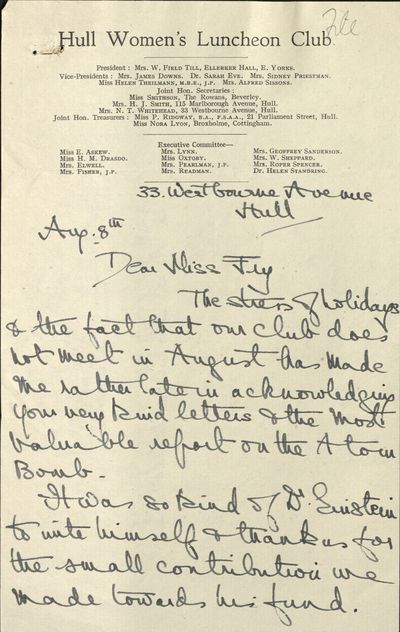 File
Hull Women's Luncheon Club
President : Mrs. W. Field Till, Ellerker Hall, E. Yorks.
Vice-Presidents : Mrs. James Downs. Dr. Sarah Eve. Mrs. Sidney Priestman.
Miss Helen Theilmann, M.B.E., J.P. Mrs. Alfred Sissons.
Joint Hon. Secretaries :
Miss Smithson, The Rowans, Beverley.
Mrs. H. J. Smith, 115 Marlborough Avenue, Hull.
Mrs. N. T. Whitehead, 33 Westbourne Avenue, Hull.
Joint Hon. Treasurers : Miss P. Ridgway, B.A., F.S.A.A., 21 Parliament Street, Hull.
Miss Nora Lyon, Broxholme, Cottingham.
Executive Committee—
Miss E. Askew.
Miss H. M. Drasdo.
Mrs. Elwell.
Mrs. Fisher, J.P.
Mrs. Lynn.
Miss Oxtoby.
Mrs. Pearlman, J.P.
Mrs. Readman.
Mrs. Geoffrey Sanderson.
Mrs. W. Sheppard.
Mrs. Roper Spencer.
Dr. Helen Standring.
33. Westbourne Avenue
Hull
Aug. 8th
Dear Miss Fry
The stress of holidays
& the fact that our club does
not meet in August has made
me rather late in acknowledging
your very kind letters & the most
valuable report on the Atom
Bomb.
It was so kind of Dr. Einstein
to write himself & thank us for
the small contribution we
made towards his fund.